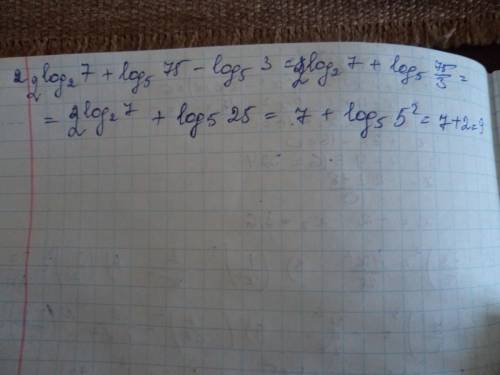 2 2^{log₂ 7} + log₅ 75 - log₅ 3 = 2^{log₂ 7} + log₅ 75/3 =
= 2^{log₂ 7} + log₅ 25 = 7 + log₅ 5² = 7+2=9